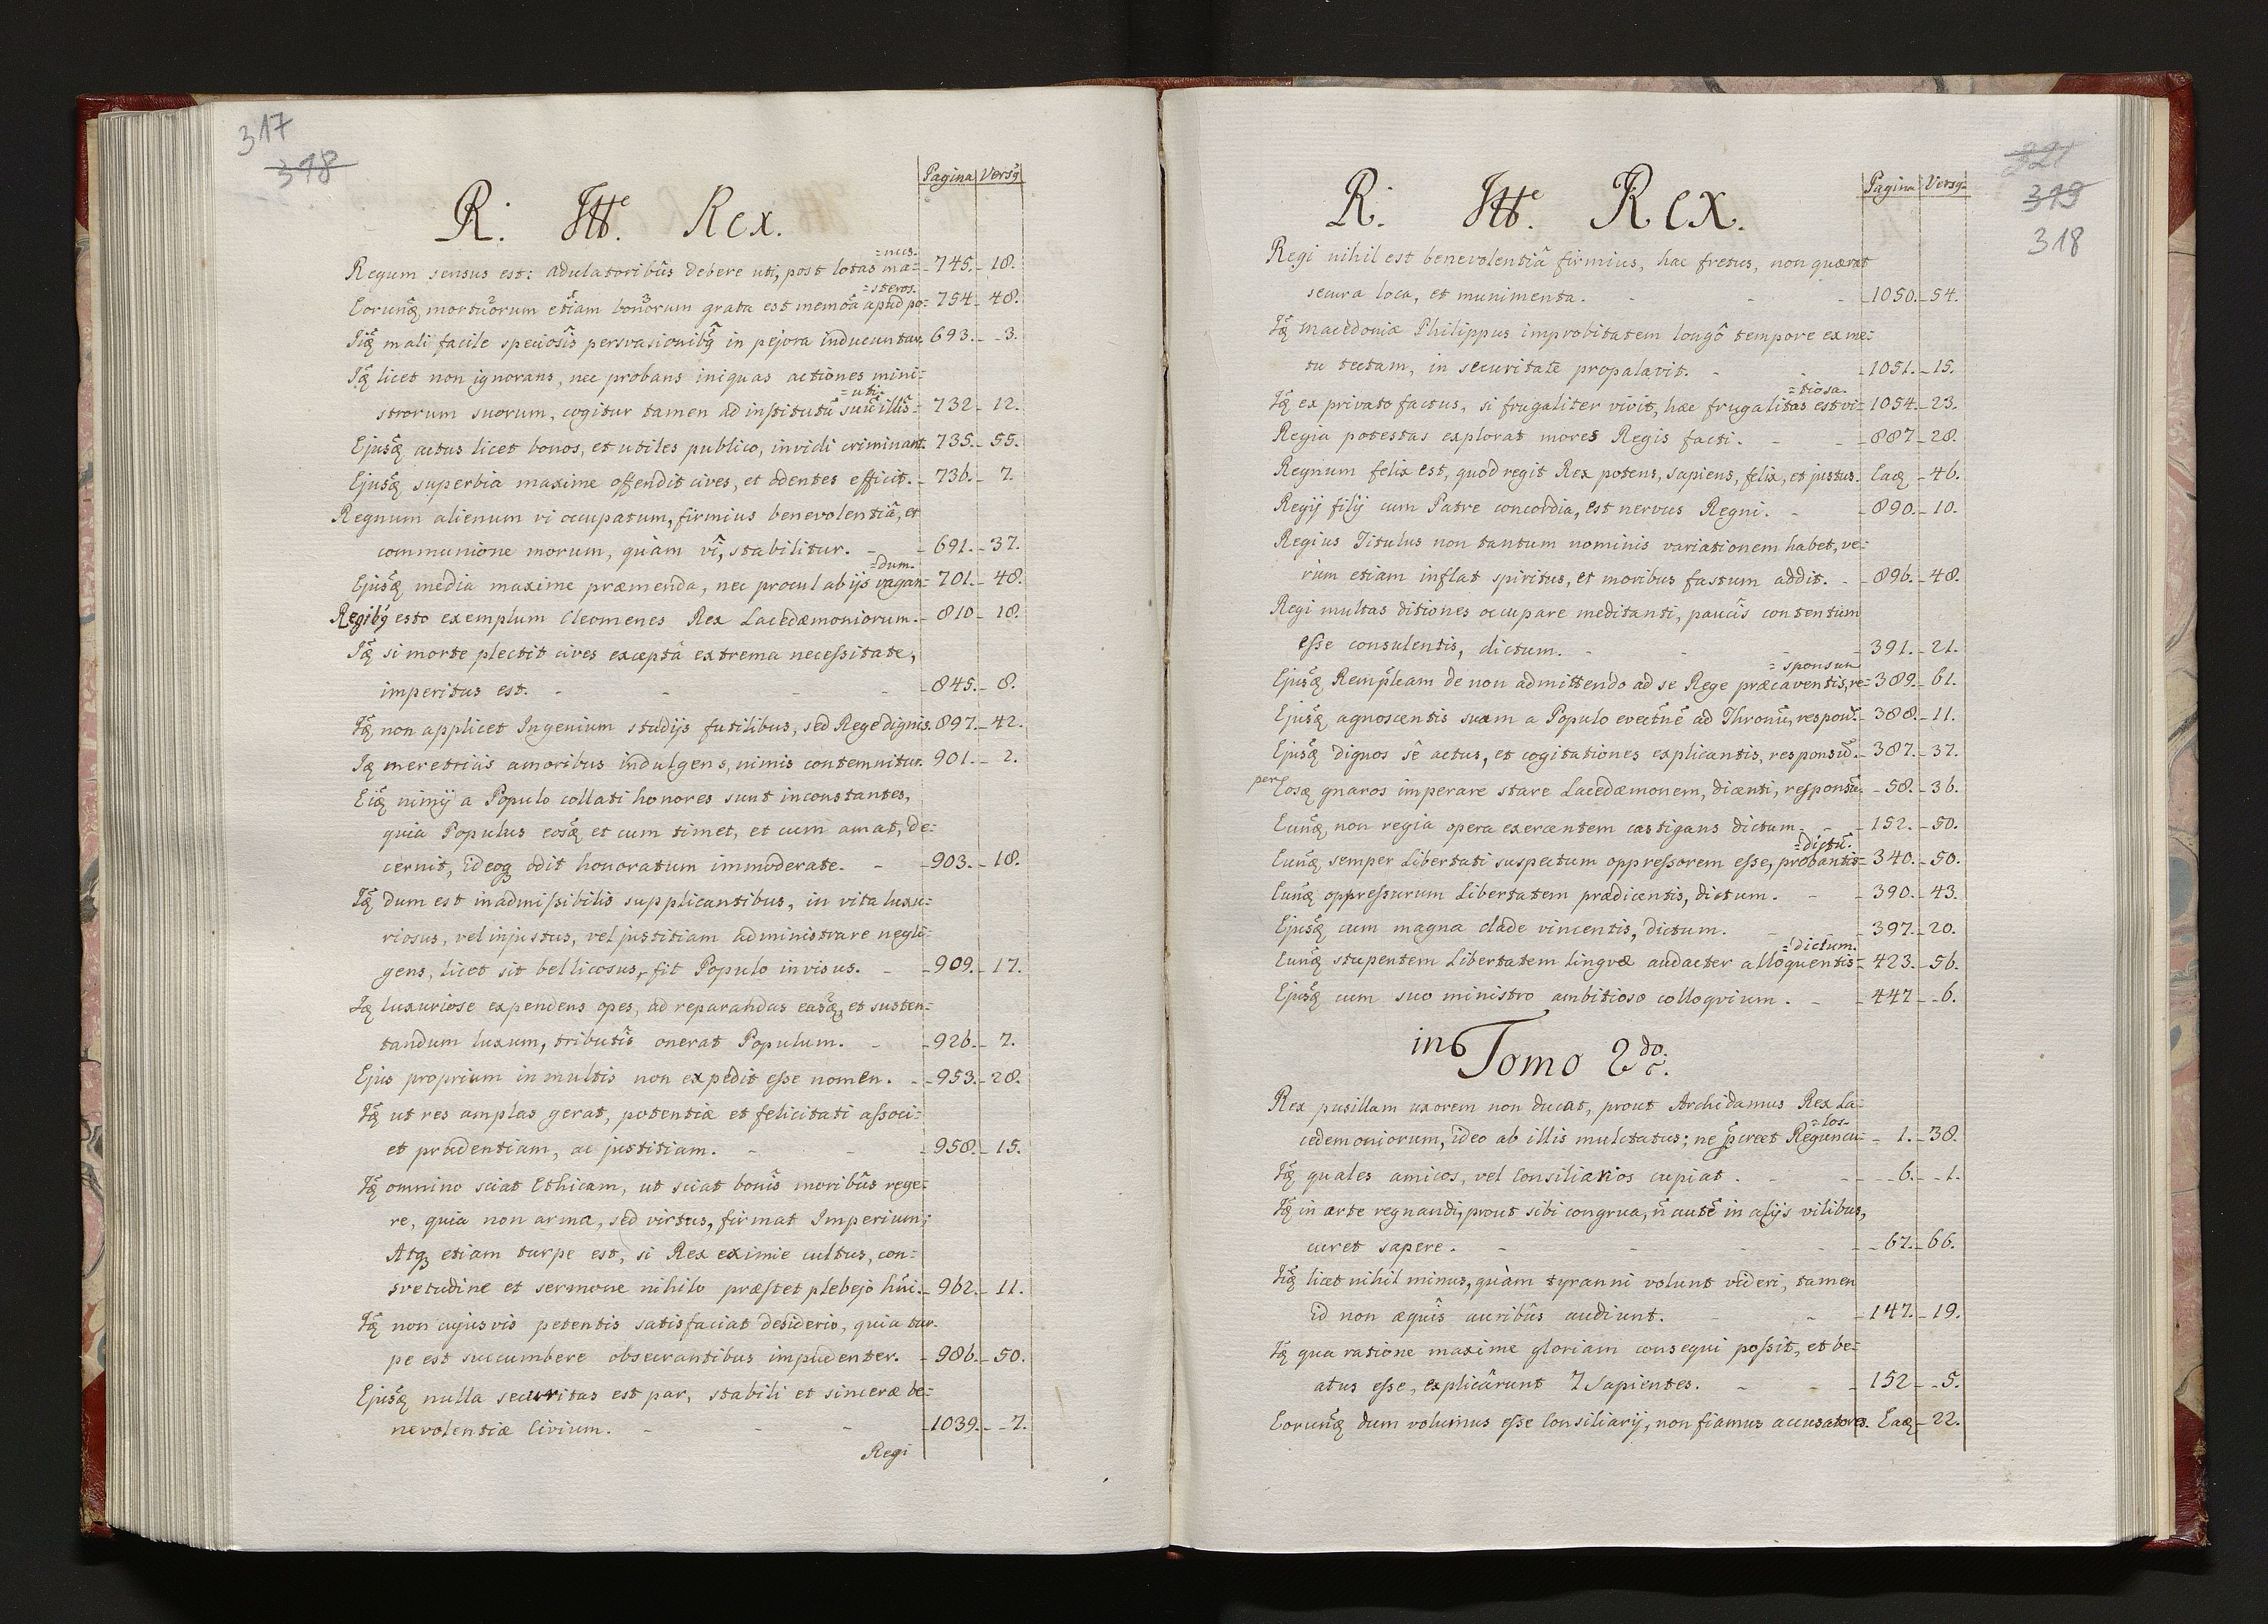 317
318
Pagina Versq
R. Itte. Rex.
=nus.
Regum sensus est: adulatoribûs debere uti, post lotas ma= 745. 18.
=steros.
Eorunq mortuorum etiam bonorum grata est memoa apud po= 754. 48.
Iiq mali facile speciosis persvasionibq in pejora inducuntur. 693. 3.
Iq licet non ignorans, nec probans iniquas actiones mini=
=uti.
strorum suorum, cogitur tamen ad institutu suu illis= 732 12.
Ejusq actus licet bonos, et utiles publico, invidi criminant. 735. 55.
Ejusq superbia maxime offendit cives, et odentes efficit. 736. 7.
Regnum alienum vi occupatum, firmius benevolentiâ, et
communione morum, quàm vî, stabilitur. 691. 37.
=dum.
Ejusq media maxime præmenda, nec procul ab ijs vagan= 701. 48.
Regibq esto exemplum Cleomenes Rex Lacedæmoniorum. 810 18.
Iq si morte plectit cives exceptâ extrema necessitate,
imperitus est. 845. 8.
Iq non applicet Ingenium studijs futilibus, sed Rege dignis. 897. 42.
Iq meretriis amoribus indulgens, nimis contemnitur. 901. 2.
Eiq nimij a Populo collati honores sunt inconstantes,
quia Populus eosq et cum timet, et cum amat, de=
cernit, ideoq odit honoratum immoderate. 903. 18.
Iq dum est inadmissibilis supplicantibus, in vita luxu=
riosus, vel injustus, vel justitiam administrare negli=
gens, licet sit bellicosus, fit Populo invisus. 909. 17.
Iq luxuriose expendens opes, ad reparandas easq, et susten=
tandum luxum, tributîs onerat Populum. 926. 7.
Ejus proprium in multis non expedit esse nomen. 953. 28.
Iq ut res amplas gerat, potentiæ et felicitati associ=
et prudentiam, ac justitiam. 958. 15.
Iq omnino sciat Ethicam, ut sciat bonîs moribûs rege=
re, quia non arma, sed virtus, firmat Imperium;
Atq etiam turpe est, si Rex eximie cultus, con=
svetudine et sermone nihilo præstet plebejo hui. 962. 11.
Iq non cujusvis petentis satisfaciat desiderio, quia tur=
pe est succumbere obsecrantibus impudenter. 986. 50.
Ejusq nulla securitas est par, stabili et sinceræ be=
nevolentiæ Civium. 1039. 7.
Regi
321
319
318
Pagina Versq
R. Itte. Rex.
Regi nihil est benevolentiâ firmius, hac fretus, non quærat
secura loca, et munimenta. 1050. 54.
Iq Macedoniæ Philippus improbitatem longô tempore ex me=
tu tectam, in securitate propalavit. 1051. 15.
=tiosa.
Iq ex privato factus, si frugaliter vivit, hæc frugalitas est vi= 1054. 23.
Regia potestas explorat mores Regis facti. 887 28.
Regnum felix est, quod regit Rex potens, sapiens, felix, et justus. Eaq 46.
Regij filij cum Patre concordia, est nervus Regni. 890. 10.
Regius Titulus non tantum nominis variationem habet, ve=
rùm etiam inflat spiritus, et moribus fastum addit. 896. 48.
Regi multas ditiones occupare meditanti, paucîs contentum
esse consulentis, dictum. 391. 21.
=sponsum
Ejusq Rempleam de non admittendo ad se Rege præcaventis, re= 389. 61.
Ejusq agnoscentis suam a Populo evectne ad Thronu, respons. 388. 11.
Ejusq dignos sê actus, et cogitationes explicantis, responsu. 387. 37.
per Eosq gnaros imperare stare Lacedæmonem, dicenti, responsu. 58. 36.
Eunq non regia opera exercentem castigans dictum. 152. 50.
=dictu.
Eunq semper Libertati suspectum oppressorem esse, probantis= 340. 50.
Eunq oppressurum Libertatem prædicentis, dictum. 390. 43.
Ejusq cum magna clade vincentis, dictum. 397. 20.
=dictum.
Eunq stupentem Libertatem lingvæ audacter alloquentis= 423. 56.
Ejusq cum suo ministro ambitioso colloqvium. 447 6.
in Tomo 2do.
Rex pusillam uxorem non ducat, prout Archidamus Rex La=
=los.
cedemoniorum, ideo ab illis mulctatus; ne pcreet Reguncu= 1. 38.
Iq quales amicos, vel Consiliarios cupiat. 6. 1.
Iq in arte regnandi, prout sibi congrua, n̄ autē in alijs vilibus,
curet sapere. 67. 66.
Iiq licet nihil minus, quàm tyranni volunt videri, tamen
id non æquîs auribûs audiunt. 147. 19.
Iq qua ratione maxime gloriam consequi possit, et be=
atus esse, explicârunt 7 Sapientes. 152 5.
Eorunq dum volumus esse Consiliarij, non fiamus accusatores. Eaq 22.